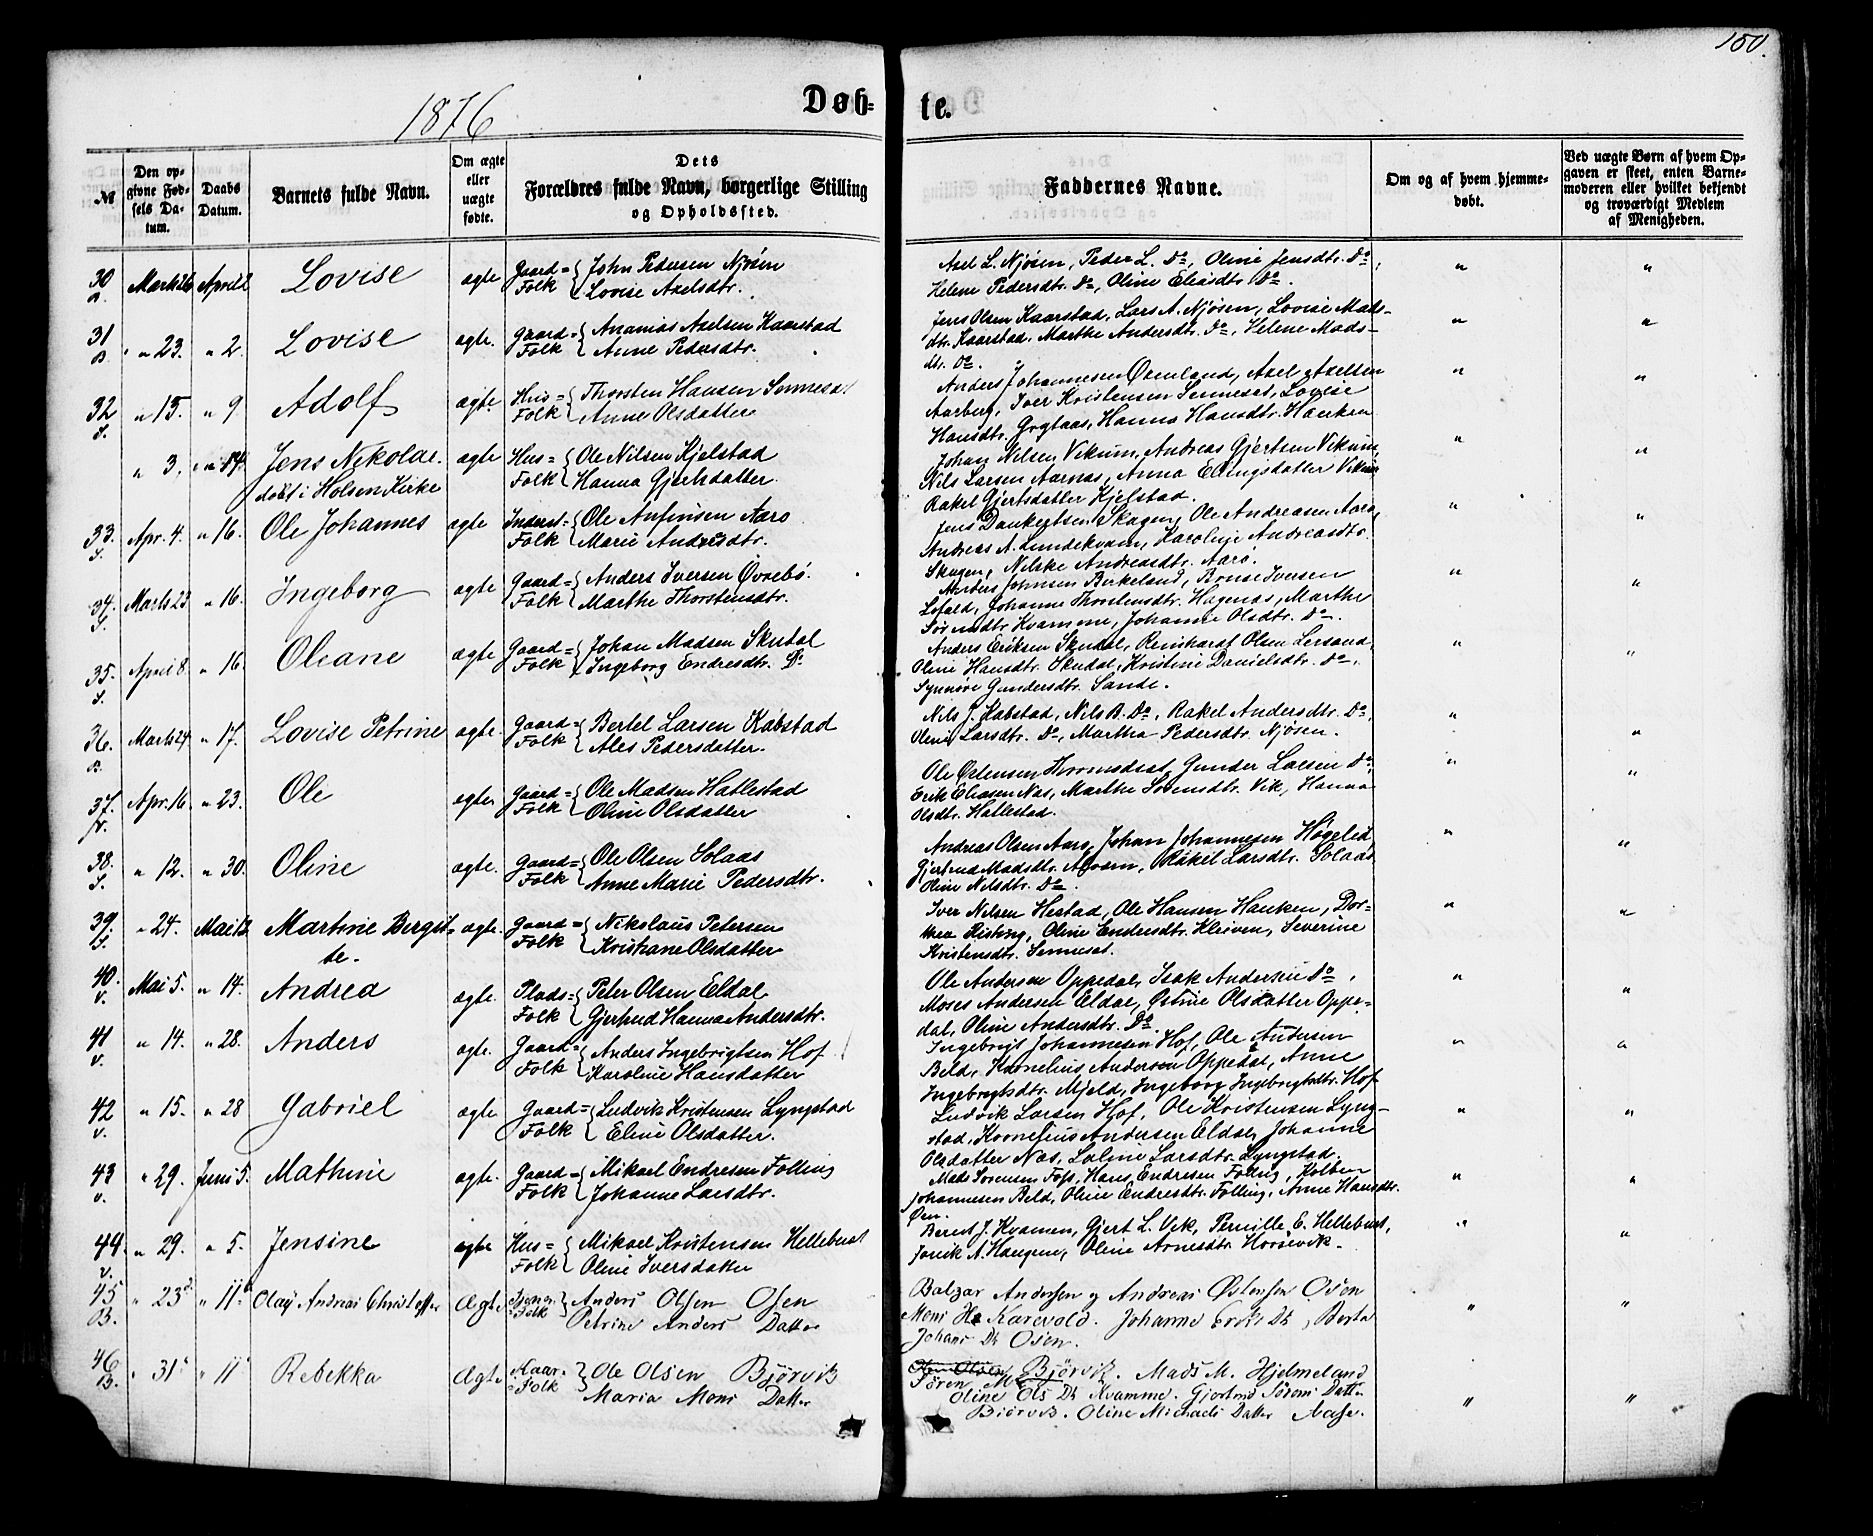 150.
1876
Døb- te.
№
Den opgivne Fødsels Datum.
Daabs Datum.
Barnets fulde Navn.
Om ægte eller uægte fødte.
Dets Forældres fulde Navn, borgerlige Stilling og Opholdssted.
Faddernes Navne.
Om og af hvem hjemmedøbt.
Ved uægte Børn af hvem Opgaven er skeet, enten Barnemoderen eller hvilket bekjendt og troværdigt Medlem af Menigheden.
30 B. Marts 26 April 2 Lovise ægte Gaard= Folk { John Pedersen Njøsen
Lovise Axelsdtr.
Axel L. Njøsen, Peder L. Do, Oline Jensdtr. Do,
Helene Pedersdtr. Do, Oline Eliasdtr. Do.
31 B. " 23. " 2. Lovise ægte. Gaard= Folk { Ananias Axelsen Kaarstad
Anne Pedersdtr.
Jens Olsen Kaarstad, Lars A. Njøsen, Lovise Mads-
dtr. Kaarstad, Marthe Andersdtr. Do, Helene Mads-
dtr. Do.
32 S. " 15. " 9 Adolf ægte. Hus= Folk { Thorsten Hansen Sennesæt
Anne Olsdatter
Anders Johannesen Øxenland, Axel Axelsen
Aarberg, Iver Kristensen Senneset, Lovise
Hansdtr. Grytaas, Hanna Hansdtr. Hauken
" 3. " 14. Jens Nikolai. ægte Hus= Folk { Ole Nilsen Kjelstad
døbt i Holsen Kirke Hanna Gjertsdatter.
Johan Nilsen Vikum, Andreas Gjertsen Vikum,
Nils Larsen Aarnæs, Anna Ellingsdatter Vikum
Rakel Gjertsdatter Kjelstad.
33. S. Apr. 4. " 16. Ole Johannes ægte Inderst= Folk { Ole Anfinsen Aarø
Marie Andreasdtr.
Jens Dankertsen Skagen, Ole Andreasen Aarø,
Andreas A. Lundekvam, Karoline Andreasdtr.
Skagen, Nilske Andreasdtr. Aarø.
34. S. Marts 23 " 16. Ingeborg ægte Gaard= Folk { Anders Iversen Øvrebø.
Marthe Thorstensdtr.
Anders Johnsen Birkeland, Iversen
Lofald, Johanne Thorstensdtr. Hagenæs, Marthe
Sørensdtr. Kvamme, Johanne Olsdtr. Do.
35. S. April 8. " 16. Oleane ægte Gaard= Folk { Johan Madsen Skudal
Ingeborg Endresdtr. Do
Anders Eriksen Skudal, Reinhardt Olsen Lersand,
Oline Hansdtr. Skudal, Kristine Danielsdtr. Do,
Synnøve Gundersdtr. Sande.
36. B. Marts 24 " 17. Lovise Petrine ægte. Gaard= Folk { Bertel Larsen Kabstad
Ales Pedersdatter.
Nils J. Kabstad, Nils B. Do, Rakel Andersdtr. Do,
Oline Larsdtr. Do, Martha Pedersdtr. Njøsen.
37. V. Apr. 16. " 23. Ole ægte Gaard= Folk { Ole Madsen Hatlestad
Oline Olsdatter
Ole Østensen, Gunder Larsen Do,
Erik Eliasen Næs, Marthe Sørensdtr. Vik, Hanna
Olsdtr. Hatlestad.
38. S. " 12. " 30. Oline ægte. Gaard= Folk { Ole Olsen Solaas
Anne Marie Pedersdtr.
Andreas Olsen Aarø, Johan Johannesen Høgelid
Gjertrud Madsdtr. , Rakel Larsdtr. Solaas
Oline Nilsdtr. Do.
39. S. " 24. Mai 13. Martine Bergit- ægte. Gaard= Folk { Nikolaus Petersen
te. Kristiane Olsdatter
Iver Nilsen Hestad, Ole Hansen Hauken, Dor-
thea Risting, Oline Endresdtr. Kleiven, Severine
Kristensdtr. Senneset.
40. V. Mai 5. " 14. Andrea ægte. Plads= Folk { Peter Olsen Eldal
Gjertrud Hanna Andersdtr.
Ole Andersen Oppedal, Isak Andersen Do,
Moses Andersen Eldal, Østine Olsdatter Oppe-
dal, Oline Andersdtr. Do.
41 V. " 14. " 28. Anders ægte. Gaard= Folk { Anders Ingebrigtsen Hof
Karoline Hansdatter
Ingebrigt Johannesen Hof, Ole Andersen
Beld, Kornelius Andersen Oppedal, Anne
Ingebrigtsdtr. Mjeld, Ingeborg Ingebrigtsdtr. Hof
42 V. " 15. " 28 Gabriel ægte Gaard= Folk { Ludvik Kristensen Lyngstad
Eline Olsdatter.
Ludvik Larsen Hof, Ole Kristensen Lyng-
stad, Kornelius Andersen Eldal, Johanne
Olsdatter Næs, Saline Larsdtr. Lyngstad.
43 V. " 29. Juni 5. Mathine ægte. Gaard= Folk { Mikael Endresen Følling
Johanne Larsdtr.
Mads Sørensen Foss, Hans Endresen Følling, Kolben
Johannesen Beld, Oline Endresdtr. Følling, Anne Hansdtr.
Øen.
44. V. " 29. " 5. Jensine ægte Hus= Folk { Mikael Kristensen Hellebust
Oline Iversdatter
Berent J. Kvamen, Gjert L. Vik, Pernille E. Hellebust,
A. Haugen, Oline Arnesdtr. Horsevik.
45 B. " 23d " 11te Olaf Andreas Christoffer Ægte Folk } Anders Olsen Osen
Petrine Anders Datter
Balzar Andersen og Andreas Østensen Osen
Mons Karevold. Johanne Eriks Dt, Berte
Johans Dt Osen.
46 B. " 31te " 11te Rebekka Ægte Gaar- Folk } Ole Olsen Bjørvik
Maria Mons Datter
Søren M. Bjørvik. Mads M. Hjelmeland
Oline Ols Dt Kvamme. Gjertrud Sørens Datter
Bjørvik. Oline Michaels Datter Aase.